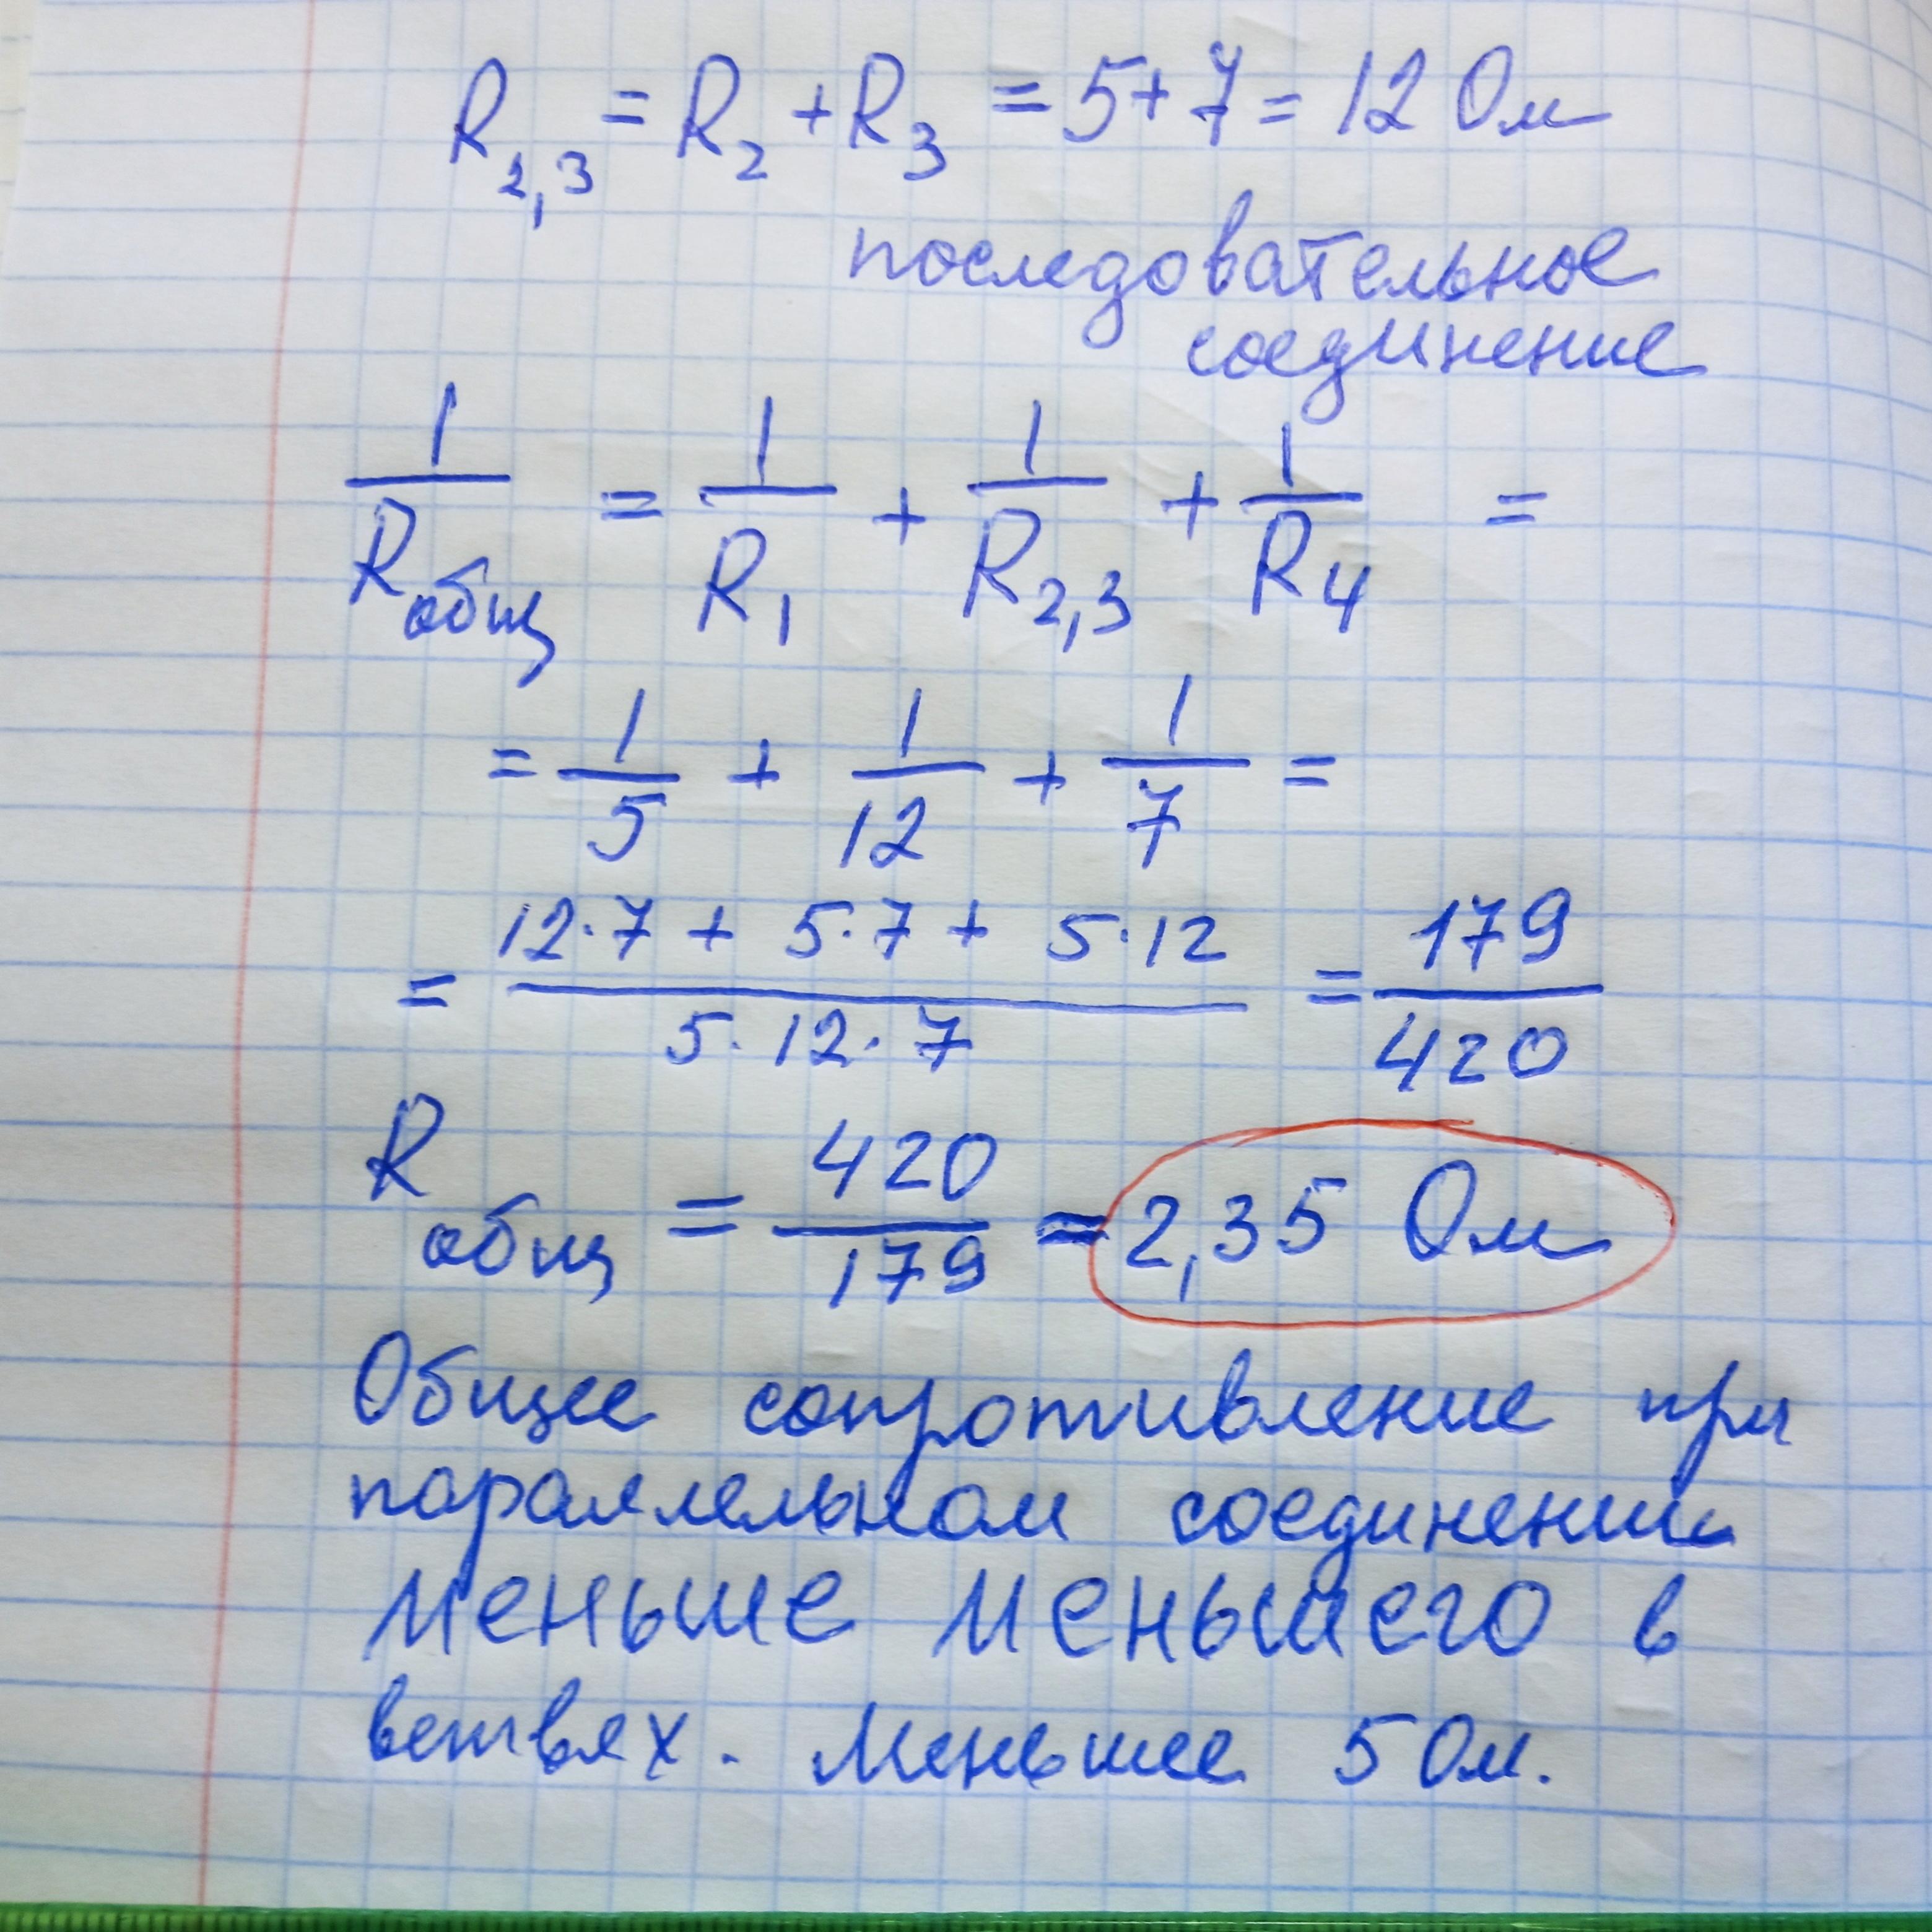 R2,3 = R2 + R3 = 5+7 = 12 Ом
последовательное
соединение
1/Rобщ = 1/R1 + 1/R2,3 + 1/R4 =
= 1/5 + 1/12 + 1/7 =
= (12·7 + 5·7 + 5·12)/(5·12·7) = 179/420
Rобщ = 420/179 = 2,35 Ом
Общее сопротивление при
параллельном соединении
меньше меньшего в
ветвях. Меньшее 5 Ом.